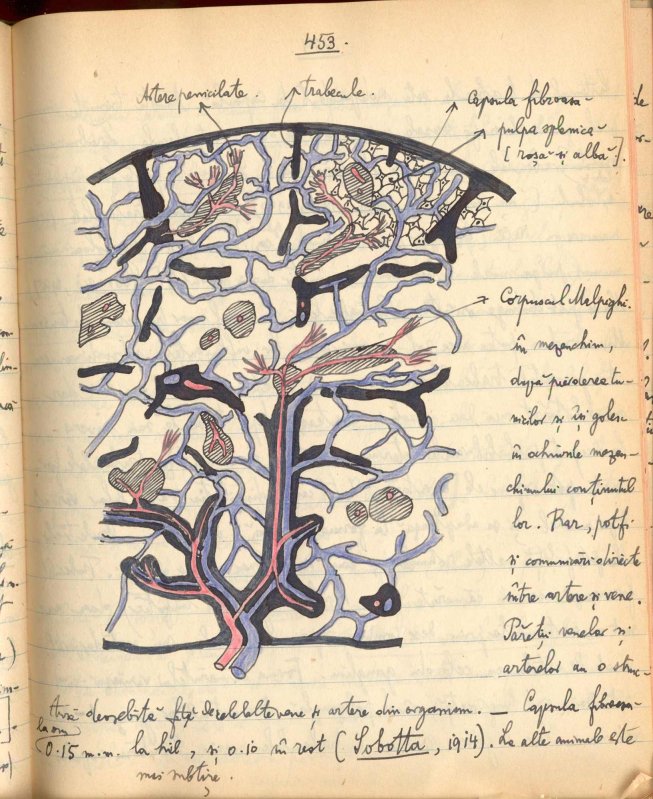 453.
Artere penicilate.
trabecule.
Capsula fibroasă
pulpa splenică
[roșă și albă].
Corpuscul Malpighi.
în mezenchim,
după pierderea tu-
nicilor și își golesc
în ochiurile mezen-
chimului conținutul
lor. Rar, pot fi
și comunicări directe
între artere și vene.
Păreții venelor și
arterelor au o struc-
tură deosebită față de celelalte vene și artere din organism. — Capsula fibroasă
la om
0.15 m.m. la hil, și 0.10 în rest (Sobotta, 1914). La alte animale este
mai subțire.